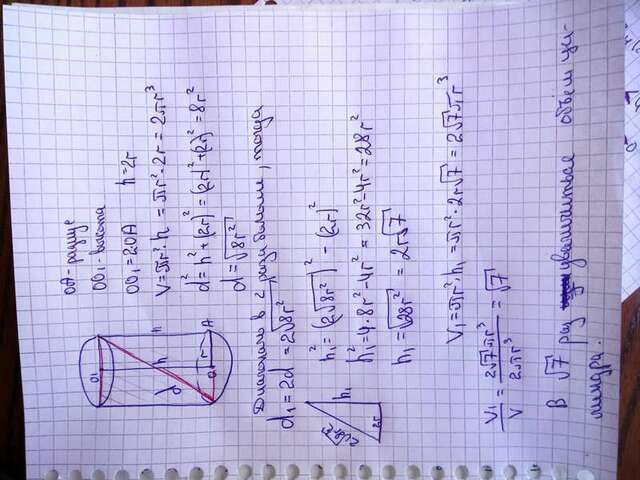 OA - радиус
OO₁ - высота
OO₁ = 2OA h = 2r
V = πr²·h = πr²·2r = 2πr³
d² = h² + (2r)² = (2r)² + (2r)² = 8r²
d = √8r²
O₁
h
d
r
O
A
Диагональ в 2 раза больше, тогда
d₁ = 2d = 2√8r²
h₁² = (2√8r²)² - (2r)²
h₁² = 4·8r² - 4r² = 32r² - 4r² = 28r²
h₁ = √28r² = 2r√7
2√8r²
h₁
2r
V₁ = πr²·h₁ = πr²·2r√7 = 2√7πr³
V₁/V = 2√7πr³/2πr³ = √7
В √7 раз увеличится объём ци-
линдра.